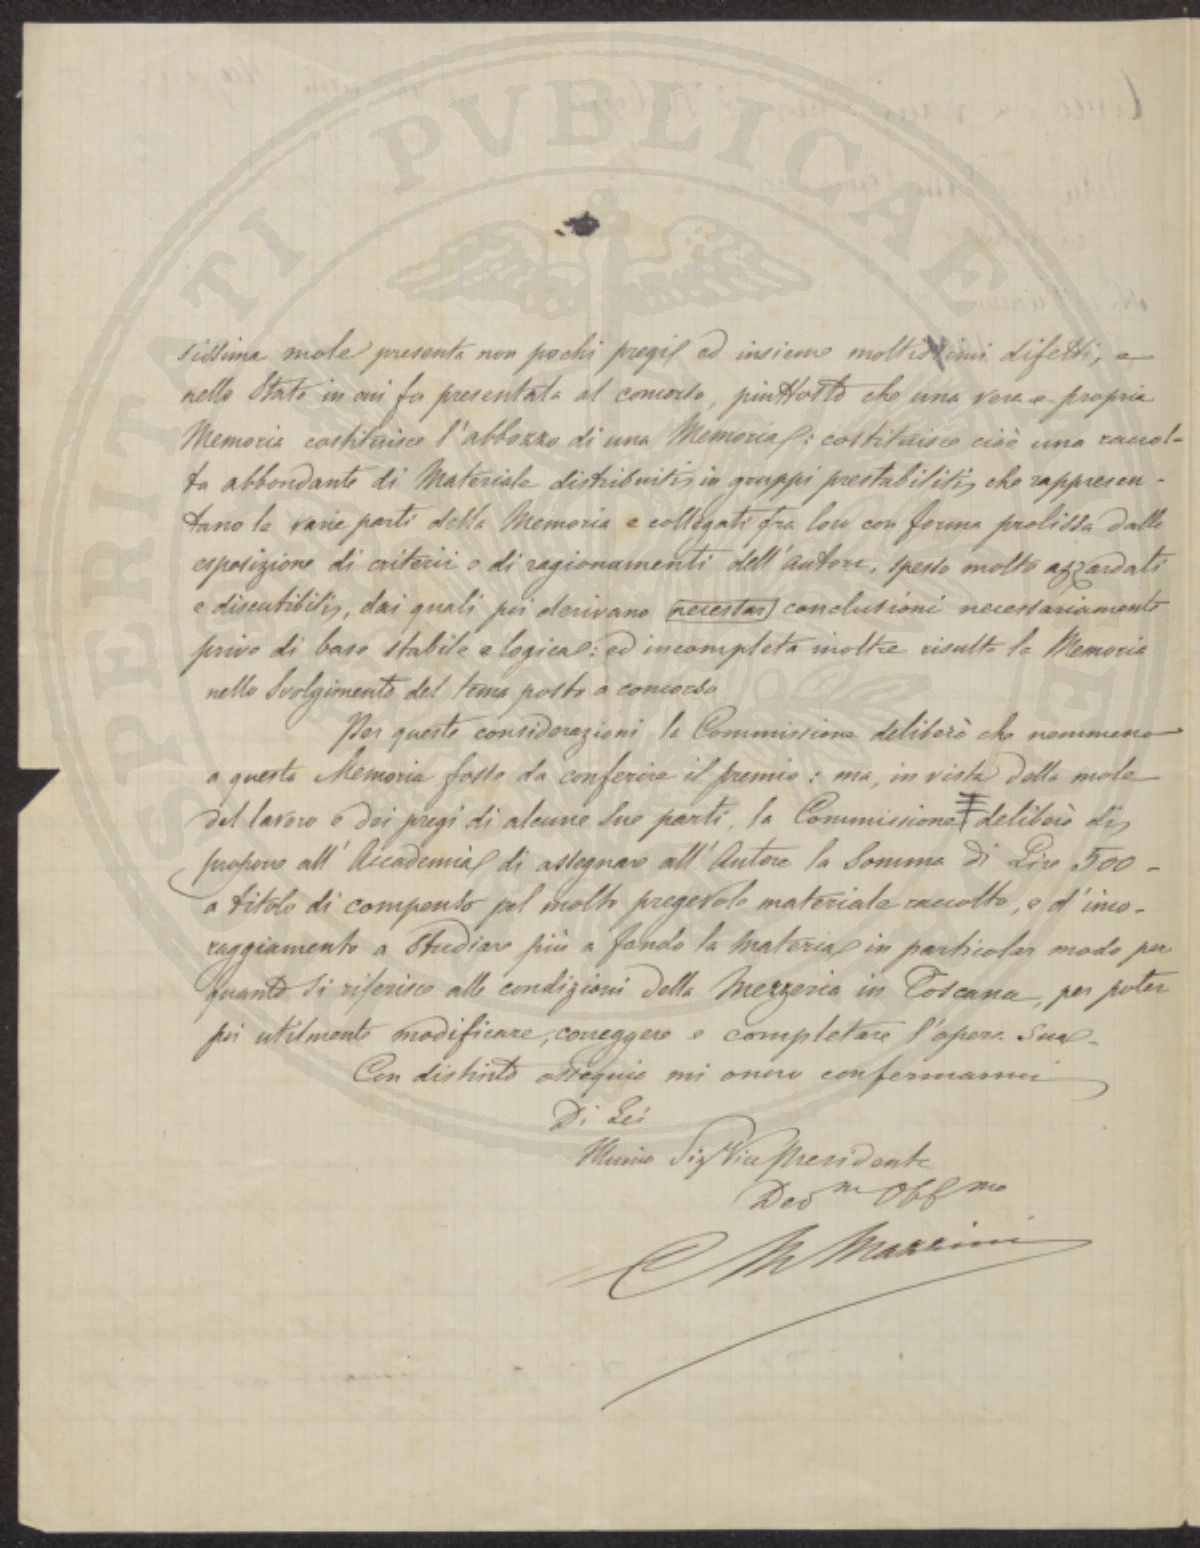 PROSPERITATI PUBLICAE
sissima mole presenta non pochi pregi ed insieme moltissimi difetti, e
nello stato in cui fu presentata al concorso, piuttosto che una vera e propria
Memoria costituisce l'abbozzo di una Memoria: costituisce cioè una raccol-
ta abbondante di Materiale distribuiti in gruppi prestabiliti, che rappresen-
tano le varie parti della Memoria e collegati fra loro con forma prolissa dalla
esposizione di criterii e di ragionamenti dell'autore, spesso molto azzardati
e discutibili, dai quali poi derivano necestar conclusioni necessariamente
prive di base stabile e logica: ed incompleta inoltre risulta la Memoria
nello svolgimento del tema posto a concorso
Per queste considerazioni la Commissione deliberò che nemmeno
a questa Memoria fosse da conferire il premio: ma, in vista della mole
del lavoro e dei pregi di alcune sue parti, la Commissione deliberò di
proporre all'Accademia di assegnare all'Autore la Somma di Lire 500-
a titolo di compenso pel molto pregevole materiale raccolto, e d'inco-
raggiamento a studiare più a fondo la materia in particolar modo per
quanto si riferisce alle condizioni della Mezzeria in Toscana, per poter
poi utilmente modificare, correggere e completare l'opera sua-
Con distinto ossequio mi onoro confermarmi
Di Lei
Illmo Sig Vice Presidente
Devmo Obbmo
C M Mazzini